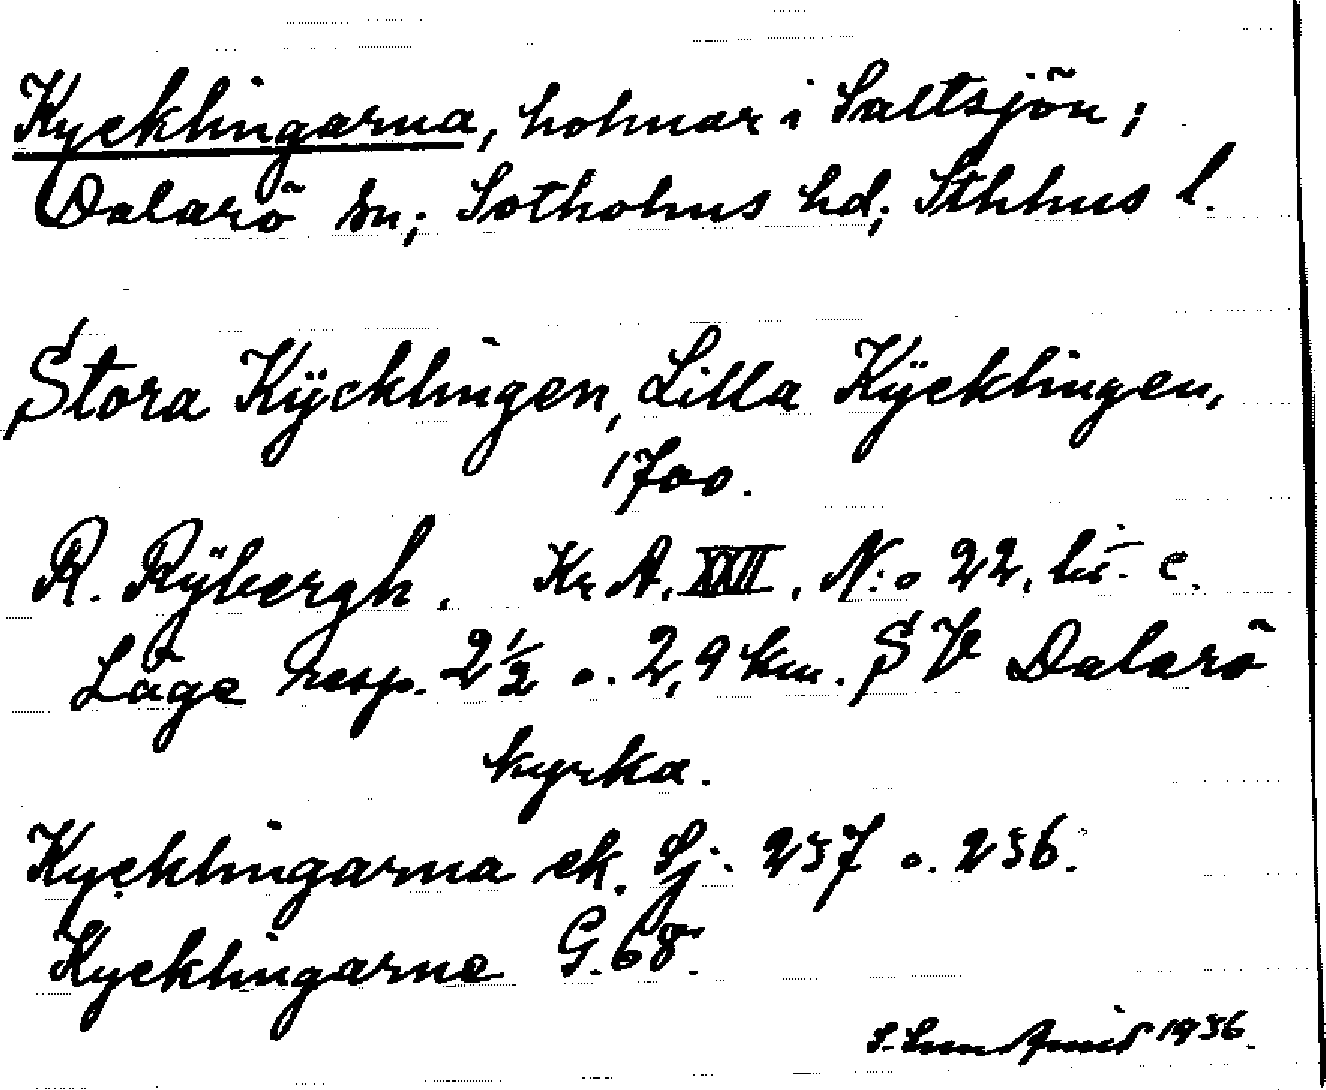 Kycklingarna, holmar i Saltsjön;
Dalarö sn; Sotholms hd; Sthlms l.
Stora Kÿcklingen, Lilla Kÿcklingen,
1700.
R. Rÿbergh. Kr A. XXII. N:o 22, lit. c.
Läge resp. 2½ o. 2,9 km. SV Dalarö
kyrka.
Kycklingarna ek. Sj. 257 o. 256.
Kycklingarne G. 68.
S. 1936